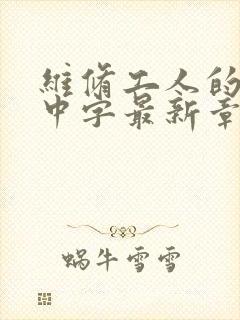 維脩工人的
中字最新章
蜗牛雪雪